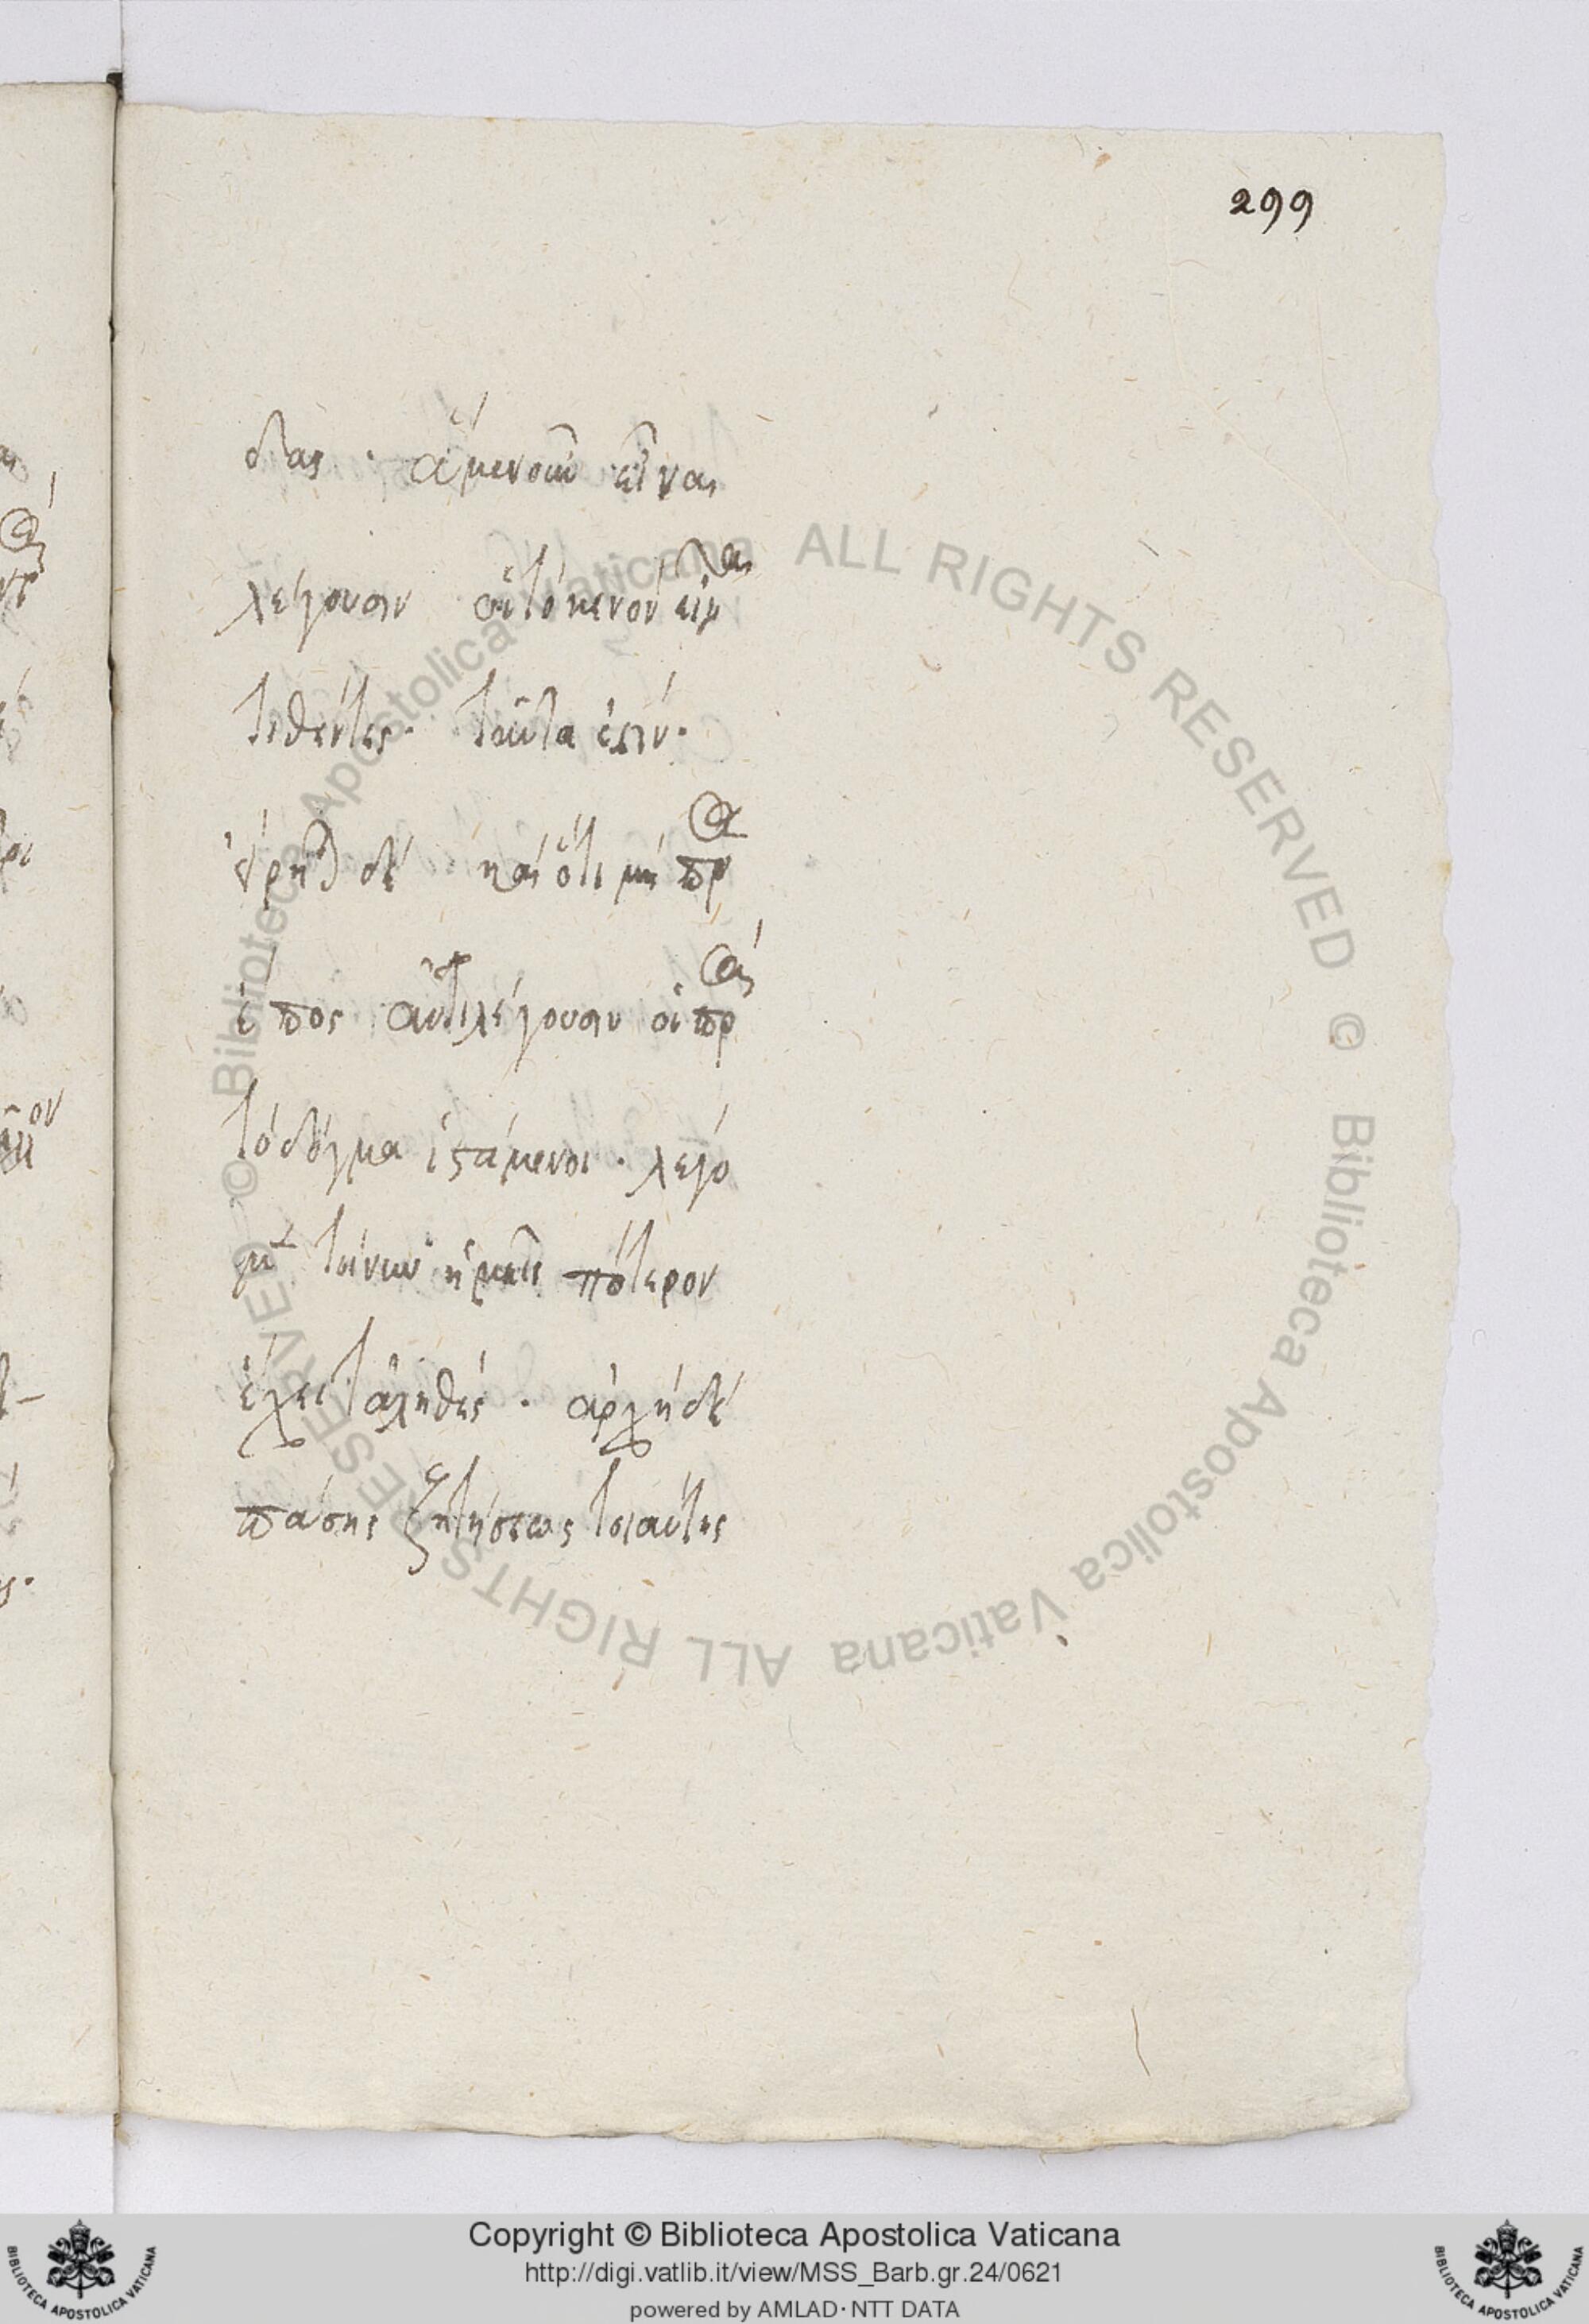 299
δας · ἃ μὲν οὖν εἶναι
λέγουσιν οἱ τὸ κενὸν εἶναι
τιθέντες. ταῦτά ἐστιν.
δὲ καὶ ὅτι μὴ πρὸς
ἔπος ἀντιλέγουσιν οἱ πρὸς
τὸ δόγμα ἱστάμενοι · λέγο
πότερον
ἔχει τἀληθές · ἀρχὴ δὲ
πάσης ζητήσεως τοιαύτης
ALL RIGHTS RESERVED © Biblioteca Apostolica Vaticana ALL RIGHTS RESERVED © Biblioteca Apostolica Vaticana
Copyright © Biblioteca Apostolica Vaticana
http://digi.vatlib.it/view/MSS_Barb.gr.24/0621
powered by AMLAD·NTT DATA
BIBLIOTECA APOSTOLICA VATICANA
BIBLIOTECA APOSTOLICA VATICANA